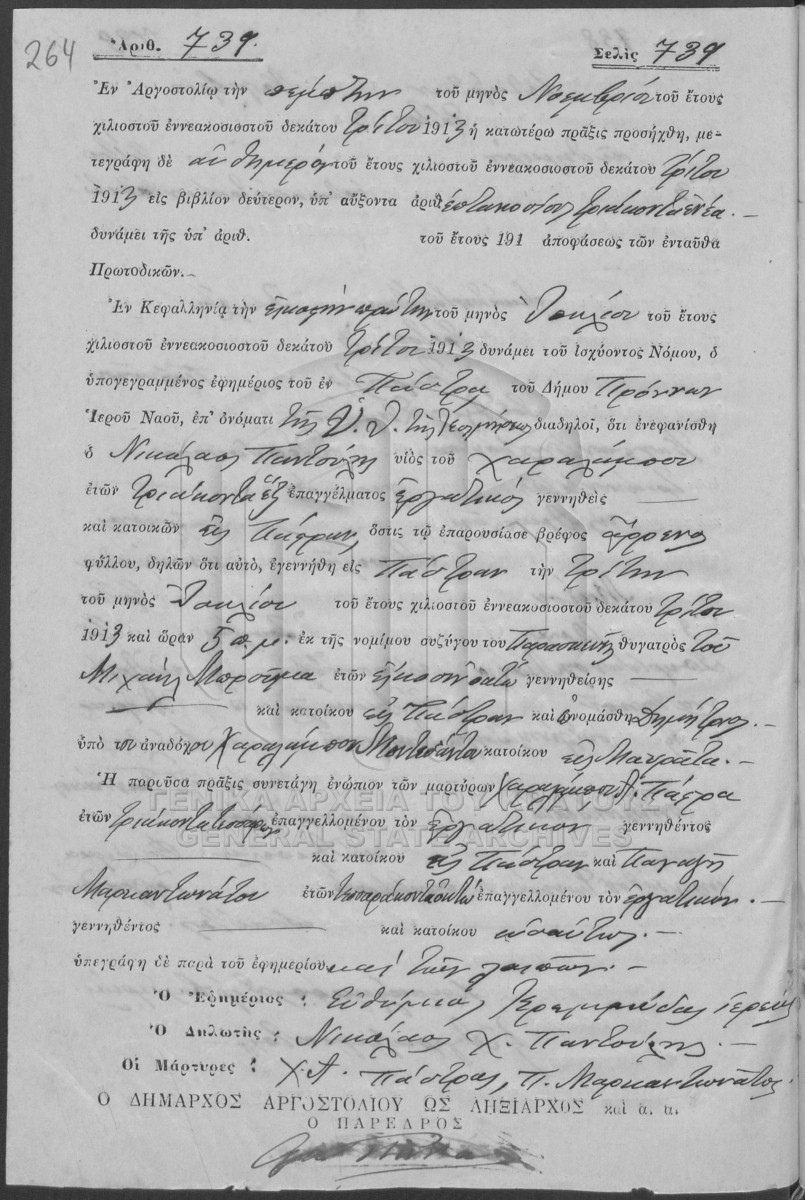 264
Ἀριθ. 739.
Σελὶς 739
Ἐν Ἀργοστολίῳ τὴν πέμπτην τοῦ μηνὸς Νοεμβρίου τοῦ ἔτους
χιλιοστοῦ ἐννεακοσιοστοῦ δεκάτου τρίτου 1913 ἡ κατωτέρω πρᾶξις προσήχθη, με-
τεγράφη δὲ αὐθημερὸν τοῦ ἔτους χιλιοστοῦ ἐννεακοσιοστοῦ δεκάτου τρίτου
1913 εἰς βιβλίον δεύτερον, ὑπ' αὔξοντα ἀριθ. ἑπτακόσιοι τριάκοντα ἐννέα. —
δυνάμει τῆς ὑπ' ἀριθ. τοῦ ἔτους 191 ἀποφάσεως τῶν ἐνταῦθα
Πρωτοδικῶν.—
Ἐν Κεφαλληνίᾳ τὴν εἰκοστὴν πρώτην τοῦ μηνὸς Ἰουλίου τοῦ ἔτους
χιλιοστοῦ ἐννεακοσιοστοῦ δεκάτου τρίτου 1913 δυνάμει τοῦ ἰσχύοντος Νόμου, ὁ
ὑπογεγραμμένος ἐφημέριος τοῦ ἐν Πάστρα τοῦ Δήμου Πρόννων
Ἱεροῦ Ναοῦ, ἐπ' ὀνόματι τῆς διαδηλοῖ, ὅτι ἐνεφανίσθη
ὁ Νικόλαος Παντούλης υἱὸς τοῦ Χαραλάμπου
ἐτῶν τριάκοντα ἕξ ἐπαγγέλματος ἐργατικὸς γεννηθεὶς —
καὶ κατοικῶν εἰς Πάστραν ὅστις τῷ ἐπαρουσίασε βρέφος ἄρρενος
φύλλου, δηλῶν ὅτι αὐτὸ, ἐγεννήθη εἰς Πάστραν τὴν τρίτην
τοῦ μηνὸς Ἰουλίου τοῦ ἔτους χιλιοστοῦ ἐννεακοσιοστοῦ δεκάτου τρίτου
1913 καὶ ὥραν 5 π.μ. ἐκ τῆς νομίμου συζύγου του Παρασκευῆς θυγατρὸς τοῦ
Μιχαὴλ ἐτῶν εἴκοσι ὀκτὼ γεννηθείσης —
— καὶ κατοίκου εἰς Πάστραν καὶ ὠνομάσθη Δημήτριος. —
ὑπὸ τοῦ ἀναδόχου Χαραλάμπου κατοίκου εἰς Μαυράτα. —
Ἡ παροῦσα πρᾶξις συνετάγη ἐνώπιον τῶν μαρτύρων Χαραλάμπου Α. Πάστρα
ἐτῶν τριάκοντα τεσσάρων ἐπαγγελλομένου τὸν ἐργατικὸν γεννηθέντος
— καὶ κατοίκου εἰς Πάστραν καὶ Παναγῆ
Μαρκαντωνάτου ἐτῶν τεσσαράκοντα ὀκτὼ ἐπαγγελλομένου τὸν ἐργατικόν. —
γεννηθέντος — καὶ κατοίκου ὡσαύτως. —
ὑπεγράφη δὲ παρὰ τοῦ ἐφημερίου καὶ τῶν λοιπῶν. —
Ὁ Ἐφημέριος : Εὐθύμιος ἱερεὺς
Ὁ Δηλωτὴς : Νικόλαος Χ. Παντούλης. —
Οἱ Μάρτυρες : Χ. Α. Πάστρας, Π. Μαρκαντωνάτος.
Ο ΔΗΜΑΡΧΟΣ ΑΡΓΟΣΤΟΛΙΟΥ ΩΣ ΛΗΞΙΑΡΧΟΣ καὶ ἀ. ἀ.
Ο ΠΑΡΕΔΡΟΣ
ΓΕΝΙΚΑ ΑΡΧΕΙΑ ΤΟΥ ΚΡΑΤΟΥΣ
GENERAL STATE ARCHIVES